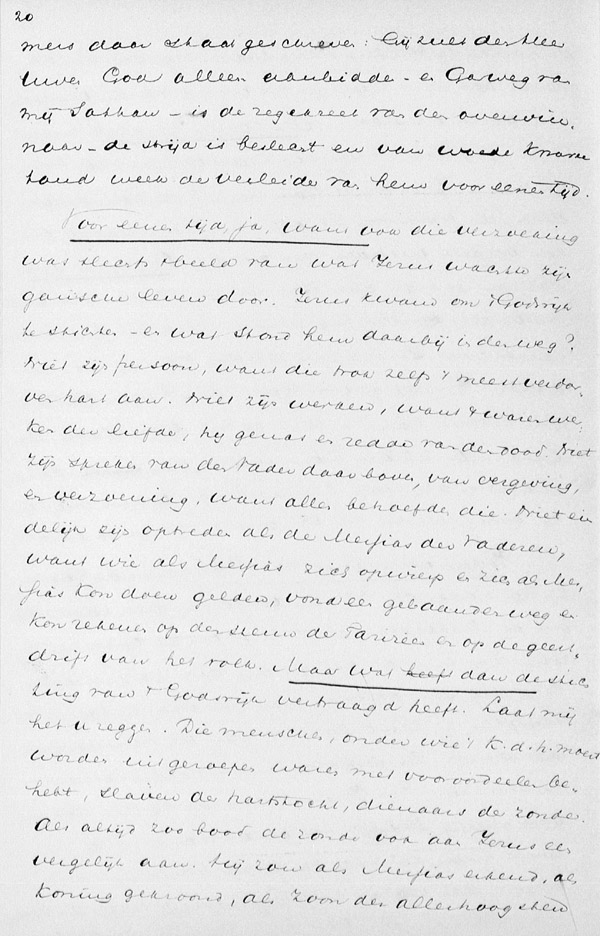 20
mers daar staat geschreven: Gij zult den Heer
Uwen God alleen aanbidden - en Ga weg van
mij Satthan - is de zegekreet van den overwin-
naar - de strijd is beslecht en van woede knarse
tand week de verleider van hem voor eenen tijd.
Voor eenen tijd ja, want ook die verzoening
was slechts beeld van wat Jezus wachtte zijn
gansche leven door. Jezus kwam om 't Godsrijk
te stichten - en wat stond hem daarbij in den weg?
Niet zijn persoon, want die trok zelfs 't meest verdor-
ven hart aan. Niet zijn werken, want 't waren wer-
ken der liefde, hij genas en redde van den dood. Niet
zijn spreken van den Vader daarboven, van vergeving,
en verzoening, want allen behoefden die. Niet ein
delijk zijn optreden als de Messias der Vaderen,
want wie als Messias zich opwierp en zich als Mes-
sias kon doen gelden, vond een gebaanden weg en
kon rekenen op den steun der Farizeën en op de geest-
drift van het volk. Maar wat heeft dan de stich
ting van 't Godsrijk vertraagd heeft. Laat mij
het u zeggen. Die menschen, onder wie 't K. d. h. moest
worden uitgeroepen waren met vooroordeelen be-
hebt, slaven der hartstocht, dienaars der zonde.
Als altijd zoo bood de zonde ook aan Jezus een
vergelijk aan. Hij zou als Messias erkend, als
Koning gekroond, als Zoon des allerhoogsten